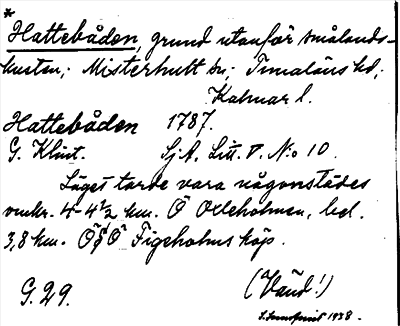 *
Hattebåden, grund utanför smålands-
kusten; Misterhult sn; Tunaläns hd;
Kalmar l.
Hattebåden 1787.
G. Klint. SjA. Litt. V. N:o 10.
Läget torde vara någonstädes
omkr. 4-4½ km. Ö Oxleholmen, bel.
3,8 km. ÖSÖ Figeholms köp.
G. 29. (Vänd!)
1938.